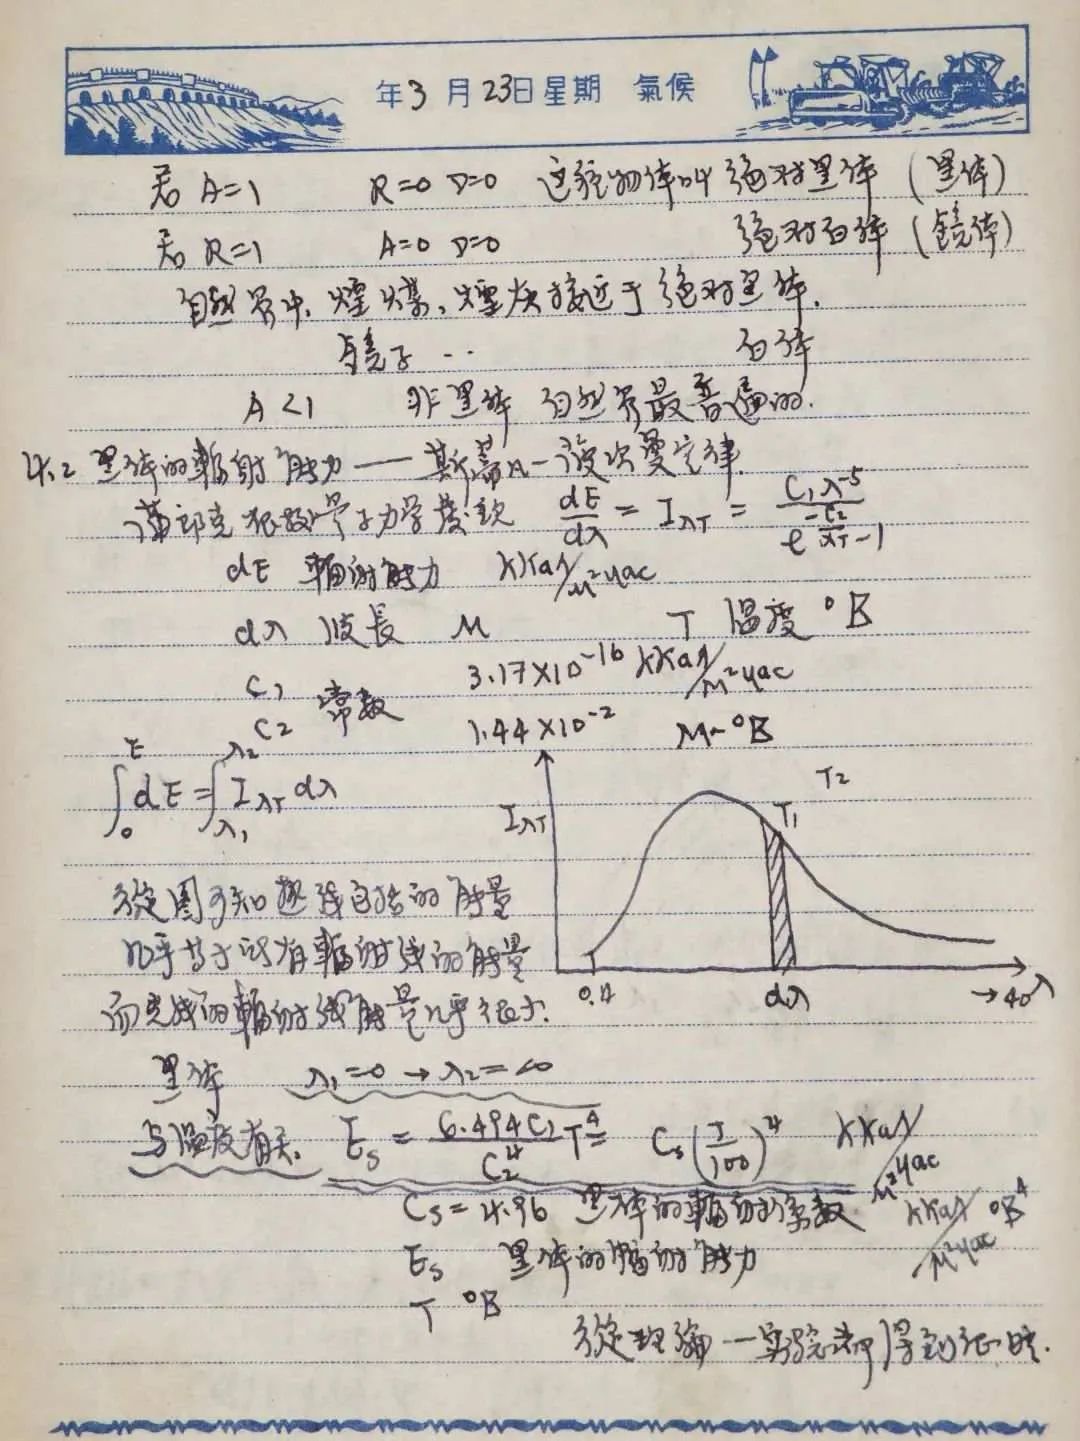 年3月23日星期 氣候
若 A=1 R=0 D=0 这种物体叫 绝对黑体 (黑体)
若 R=1 A=0 D=0 绝对白体 (镜体)
自然界中, 煙煤, 煙灰接近于绝对黑体.
镜子 … 白体
A<1 非黑体 自然界最普通的.
4.2 黑体的輻射能力——斯蒂 — 波尔曼定律.
根据量子力学 dE/dλ = IλT = C₁λ⁻⁵/(e^(-C₂/λT)-1)
dE 輻射能力 kKaл/м²час
dλ 波長 м T 温度 °B
C₁ 常数 3.17×10⁻¹⁶ kKaл/м²час
C₂ 1.44×10⁻² м-°B
∫₀ᴱ dE = ∫λ₁^λ₂ IλT dλ
IλT T₂ T₁
0.4 dλ →40 λ
從圖可知热线包括的能量
几乎等于所有輻射线的能量
而光线的輻射线能量几乎很小.
黑体 λ₁=0 → λ₂=∞
与温度有关. Es = 6.494C₁/C₂⁴ T⁴ = Cs(T/100)⁴ kKaл/м²час
Cs=4.96 黑体的輻射係数 kKaл/м²час °B⁴
Es 黑体的輻射能力
T °B
從理論—实验都得到证明.